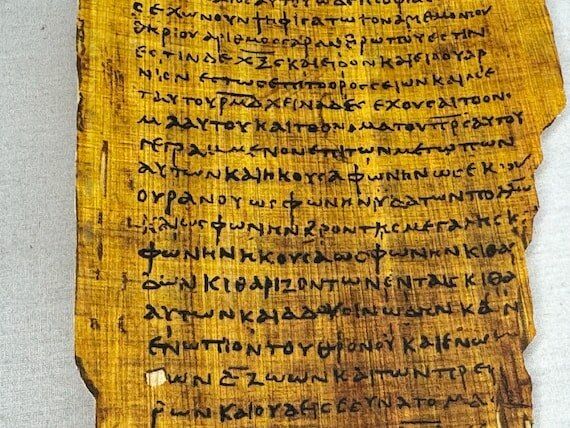 ΕΧΩΝΟΥΝΨΗΦΙϹΑΤΩΤΟΝΑΡΙΘΜΟΝΤΟΥ
ΘΗΡΙΟΥΑΡΙΘΜΟϹΓΑΡΑΝΘΡΩΠΟΥΕϹΤΙΝ
ΕϹΤΙΝΔΕΧΞϚΚΑΙΕΙΔΟΝΚΑΙΕΙΔΟΥΑΡ
ΝΙΟΝΕϹΤΩϹΕΠΙΤΟΟΡΟϹϹΕΙΩΝΚΑΙΜΕ
ΤΑΥΤΟΥΡΜΔΧΕΙΛΙΑΔΕϹΕΧΟΥϹΑΙΤΟΟΝΟ
ΜΑΑΥΤΟΥΚΑΙΤΟΟΝΟΜΑΤΟΥΠΡϹΑΥΤΟΥ
ΓΕΓΡΑΜΜΕΝΟΝΕΠΙΤΩΝΜΕΤΩΠΩΝ
ΑΥΤΩΝΚΑΙΗΚΟΥϹΑΦΩΝΗΝΕΚΤΟΥ
ΟΥΡΑΝΟΥΩϹΦΩΝΗΝΥΔΑΤΩΝΠΟΛΛΩΝ
ΚΑΙΩϹΦΩΝΗΝΒΡΟΝΤΗϹΜΕΓΑΛΗϹΚ
ΦΩΝΗΝΗΚΟΥϹΑΩϹΦΩΝΗΝΚΙΘΑ
ΔΩΝΚΙΘΑΡΙΖΟΝΤΩΝΕΝΤΑΙϹΚΙΘΑ
ΑΥΤΩΝΚΑΙΑΔΟΥϹΙΝΩΔΗΝΚΑΙΝ
ΕΝΩΠΙΟΝΤΟΥΘΡΟΝΟΥΚΑΙΕΝΩ
ΤΩΝΔΖΩΩΝΚΑΙΤΩΝΠΡΕ
ΡΩΝΚΑΙΟΥΔΕΙϹΕΔΥΝΑΤΟΜΑ